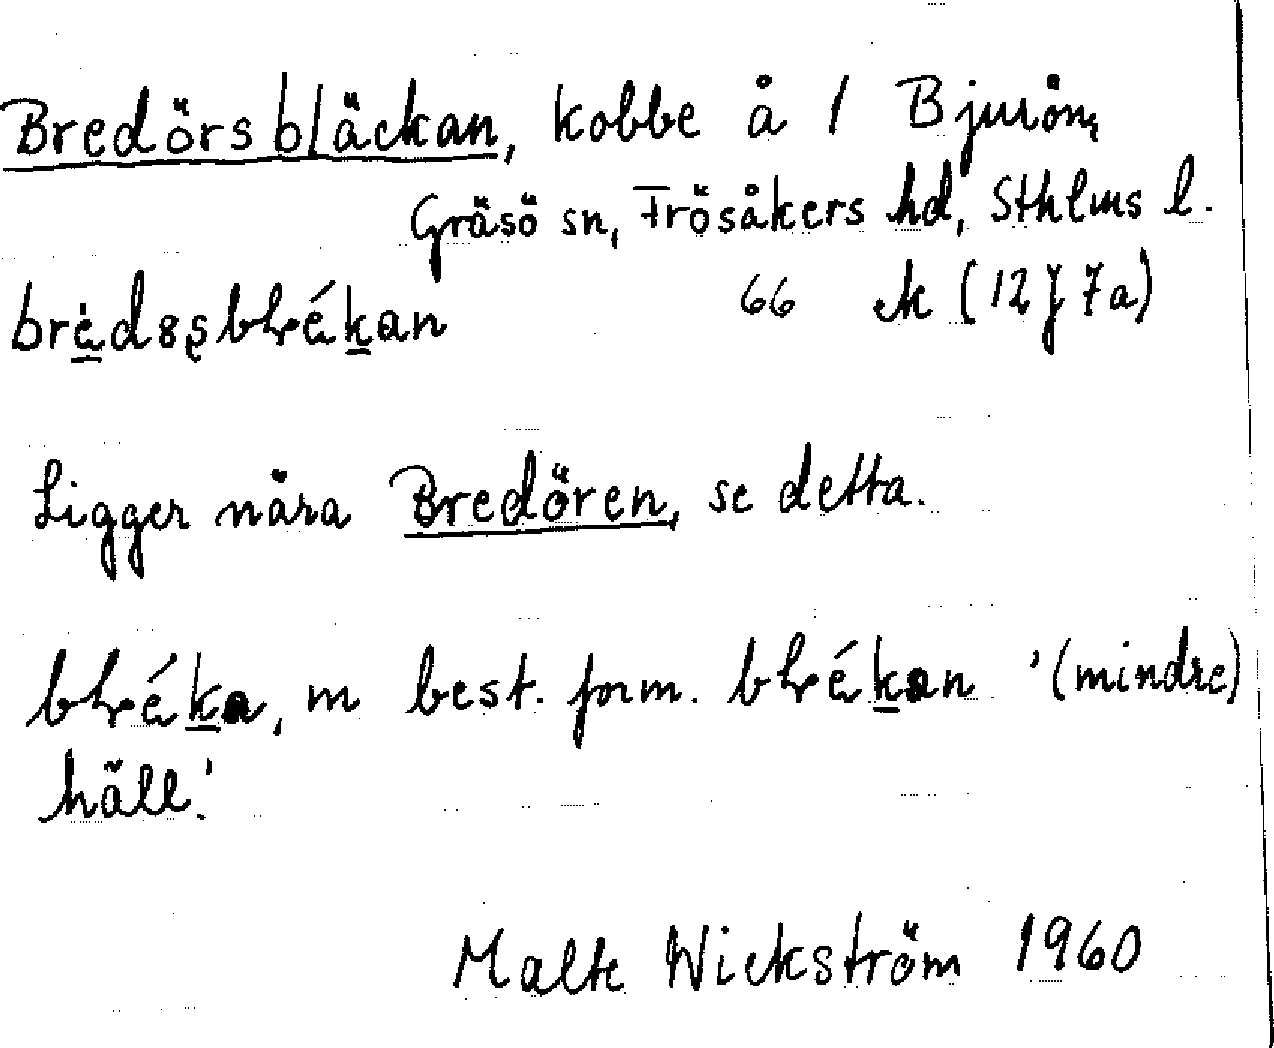 Bredörsbläckan, kobbe å 1 Bjurön,
Gräsö sn, Frösåkers hd, Sthlms l.
66 ek (12 J 7a)
Ligger nära Bredören, se detta.
m best. form. '(mindre)
häll.'
Malte Wickström 1960